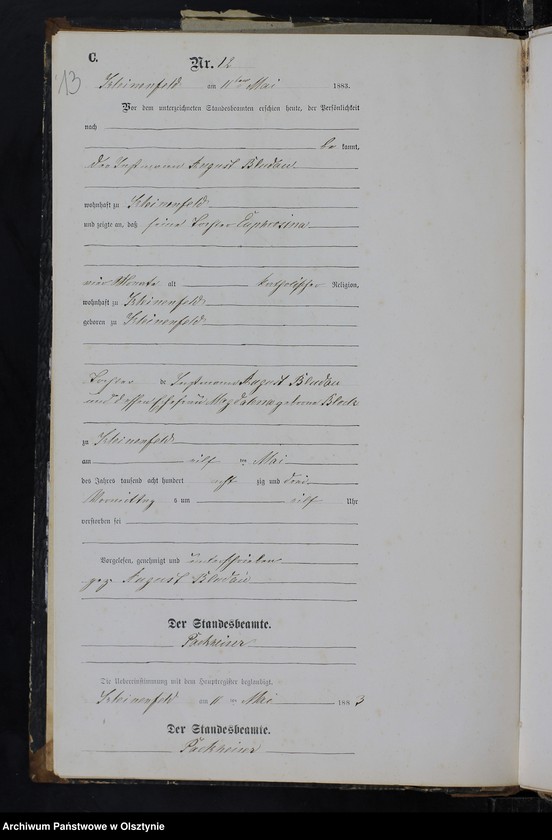 C.
13
Nr. 12
Kleinenfeld am 11ten Mai 1883.
Vor dem unterzeichneten Standesbeamten erschien heute, der Persönlichkeit
nach
be kannt,
der Instmann August Bludau
wohnhaft zu Kleinenfeld
und zeigte an, daß seine Tochter Euphrosina
vier Monate alt katholischer Religion,
wohnhaft zu Kleinenfeld
geboren zu Kleinenfeld
Tochter de Instmann August Bludau
und dessen Ehefrau Magdalena geborne Block
zu Kleinenfeld
am eilf ten Mai
des Jahres tausend acht hundert acht zig und drei
Vormittag s um eilf Uhr
verstorben sei
Vorgelesen, genehmigt und unterschrieben
gez. August Bludau
Der Standesbeamte.
Packheiser
Die Uebereinstimmung mit dem Hauptregister beglaubigt.
Kleinenfeld am 11 ten Mai 1883
Der Standesbeamte.
Packheiser
Archiwum Państwowe w Olsztynie